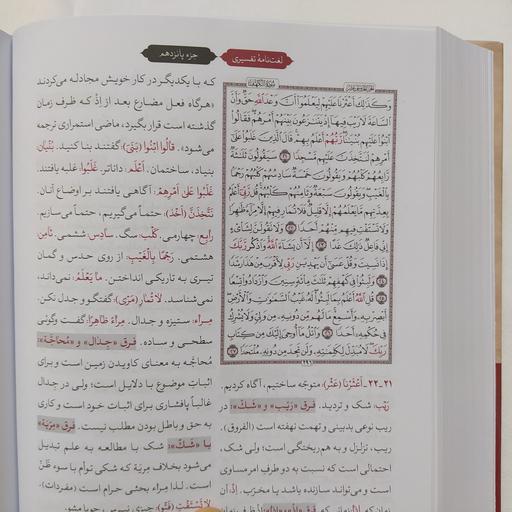 لغت‌نامهٔ تفسیری
جزء پانزدهم
سُورَةُ الكَهْف
وَكَذَٰلِكَ أَعْثَرْنَا عَلَيْهِمْ لِيَعْلَمُوٓا۟ أَنَّ وَعْدَ ٱللَّهِ حَقٌّ وَأَنَّ
ٱلسَّاعَةَ لَا رَيْبَ فِيهَآ إِذْ يَتَنَٰزَعُونَ بَيْنَهُمْ أَمْرَهُمْ فَقَالُوا۟
ٱبْنُوا۟ عَلَيْهِم بُنْيَٰنًا رَّبُّهُمْ أَعْلَمُ بِهِمْ قَالَ ٱلَّذِينَ غَلَبُوا۟ عَلَىٰٓ
أَمْرِهِمْ لَنَتَّخِذَنَّ عَلَيْهِم مَّسْجِدًا ٢١ سَيَقُولُونَ ثَلَٰثَةٌ
رَّابِعُهُمْ كَلْبُهُمْ وَيَقُولُونَ خَمْسَةٌ سَادِسُهُمْ كَلْبُهُمْ رَجْمًۢا
بِٱلْغَيْبِ وَيَقُولُونَ سَبْعَةٌ وَثَامِنُهُمْ كَلْبُهُمْ قُل رَّبِّىٓ أَعْلَمُ
بِعِدَّتِهِم مَّا يَعْلَمُهُمْ إِلَّا قَلِيلٌ فَلَا تُمَارِ فِيهِمْ إِلَّا مِرَآءً ظَٰهِرًا
وَلَا تَسْتَفْتِ فِيهِم مِّنْهُمْ أَحَدًا ٢٢ وَلَا تَقُولَنَّ لِشَا۟ىْءٍ
إِنِّى فَاعِلٌ ذَٰلِكَ غَدًا ٢٣ إِلَّآ أَن يَشَآءَ ٱللَّهُ وَٱذْكُر رَّبَّكَ
إِذَا نَسِيتَ وَقُلْ عَسَىٰٓ أَن يَهْدِيَنِ رَبِّى لِأَقْرَبَ مِنْ هَٰذَا رَشَدًا
٢٤ وَلَبِثُوا۟ فِى كَهْفِهِمْ ثَلَٰثَ مِا۟ئَةٍ سِنِينَ وَٱزْدَادُوا۟ تِسْعًا
٢٥ قُلِ ٱللَّهُ أَعْلَمُ بِمَا لَبِثُوا۟ لَهُۥ غَيْبُ ٱلسَّمَٰوَٰتِ وَٱلْأَرْضِ
أَبْصِرْ بِهِۦ وَأَسْمِعْ مَا لَهُم مِّن دُونِهِۦ مِن وَلِىٍّ وَلَا يُشْرِكُ
فِى حُكْمِهِۦٓ أَحَدًا ٢٦ وَٱتْلُ مَآ أُوحِىَ إِلَيْكَ مِن كِتَابِ
رَبِّكَ لَا مُبَدِّلَ لِكَلِمَٰتِهِۦ وَلَن تَجِدَ مِن دُونِهِۦ مُلْتَحَدًا ٢٧
٢٩٦
۲۱ـ۲۲ـ أَعْثَرْنا (عَثَرَ): متوجّه ساختیم، آگاه کردیم.
رَیْب: شک و تردید. فرق «رَیْب» و «شَکّ»: در
ریب نوعی بدبینی و تهمت نهفته است (الفروق).
ریب، تزلزل و به هم ریختگی است؛ ولی شک،
احتمالی است که نسبت به دو طرف امر مساوی
است و می‌تواند سازنده یاشد یا مخرّب. إذ: آن
که با یکدیگر در کار خویش مجادله می‌کردند
«هرگاه فعل مضارع بعد از إذْ که ظرف زمان
گذشته است قرار بگیرد، ماضی استمراری ترجمه
می‌شود». قالُوا ابْنُوا (بَنَیَ): گفتند بنا کنید. بُنْیان:
بنیاد، ساختمان. أَعْلَم: داناتر. غَلَبُوا: غلبه یافتند.
غَلَبُوا عَلىٰ أَمْرِهِمْ: آگاهی یافتند بر اوضاع آنان
نَتَّخِذَنَّ (أَخَذَ): حتماً می‌گیریم، حتماً می‌سازیم.
رابِع: چهارمی. کَلْب: سگ. سادِس: ششمی. ثامِن:
هشتمی. رَجْمًا بِالْغَیْبِ: از روی حدس و گمان
تیری به تاریکی انداختن. ما یَعْلَمُ: نمی‌داند،
نمی‌شناسد. لا تُمارِ (مَرَیَ): گفتگو و جدل نکن.
مِراء: ستیزه و جدال. مِراءً ظاهِرًا: گفت وگوئی
سطحی و ساده. فرق «جِدال» و «مُحاجَّة»:
محاجّه به معنای کاویدن زمین است و برای
اثبات موضوع با دلایل است؛ ولی در جدال
غالباً پافشاری برای اثبات خود است و کاری
به حق و باطل بودن مطلب نیست. فرق «مِرْیَة»
با «شَکّ»: شک با مطالعه به علم تبدیل
می‌شود بخلاف مِرْیَة که شکی توأم با سوء ظنّ
است. لذا مِراء بحثی حرام است (مفردات).
لا تَسْتَفْتِ (فَتَوَ): چیزی نپرس، جویا مشو.